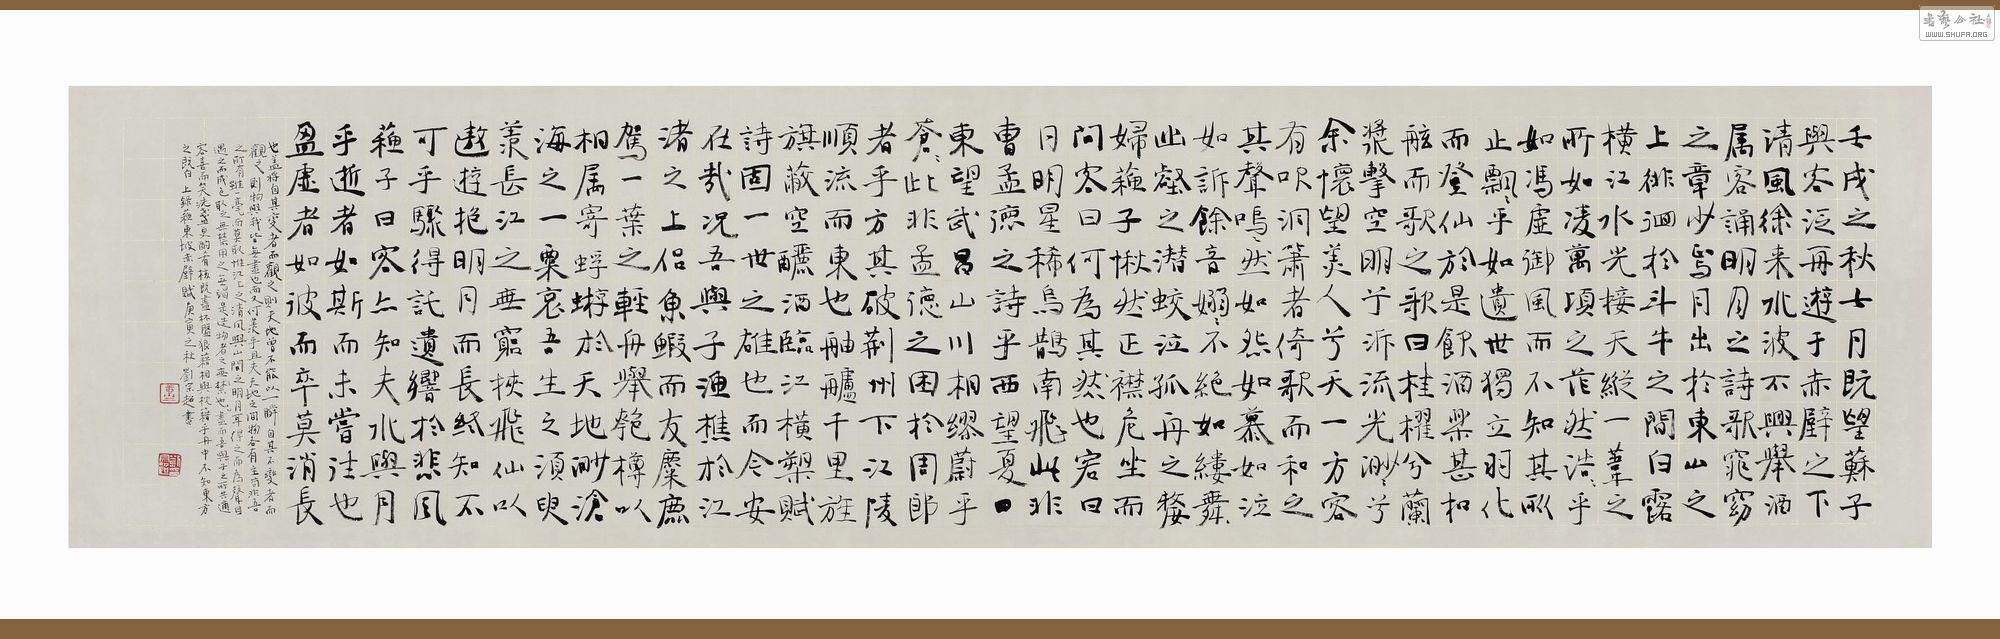 壬戌之秋七月既望蘇子
與客泛舟遊于赤壁之下
清風徐来水波不興舉酒
属客誦明月之詩歌窕窈
之章少焉月出於東山之
上徘徊於斗牛之間白露
横江水光接天縱一葦之
所如凌萬頃之茫然浩〻乎
如馮虚御風而不知其所
止飄〻乎如遺世獨立羽化
而登仙於是飲酒樂甚扣
舷而歌之歌曰桂櫂兮蘭
槳擊空明兮泝流光渺〻兮
余懷望美人兮天一方客
有吹洞簫者倚歌而和之
其聲嗚〻然如怨如慕如泣
如訴餘音嫋〻不絶如縷舞
幽壑之潜蛟泣孤舟之嫠
婦蘇子愀然正襟危坐而
問客曰何為其然也客曰
月明星稀烏鵲南飛此非
曹孟德之詩乎西望夏口
東望武昌山川相繆蔚乎
蒼〻此非孟德之困於周郎
者乎方其破荆州下江陵
順流而東也舳艫千里旌
旗蔽空釃酒臨江横槊賦
詩固一世之雄也而今安
在哉况吾與子漁樵於江
渚之上侣魚鰕而友麋鹿
駕一葉之輕舟舉匏樽以
相属寄蜉蝣於天地渺滄
海之一粟哀吾生之須臾
羡長江之無窮挾飛仙以
遨遊抱明月而長終知不
可乎驟得託遺響於悲風
蘇子曰客亦知夫水與月
乎逝者如斯而未嘗往也
盈虚者如彼而卒莫消長
也盖将自其変者而觀之則天地曾不能以一瞬自其不變者而
觀之則物與我皆無盡也而又何羡乎且夫天地之間物各有主苟非吾
之所有雖一毫而莫取惟江上之清風與山間之明月耳得之而為聲目
遇之而成色取之無禁用之不竭是造物者之無盡藏也而吾與子之所共適
客喜而笑洗盞更酌肴核既盡杯盤狼藉相與枕藉乎舟中不知東方
之既白 上録蘇東坡赤壁賦庚寅之秋 劉宗超書
书艺公社
WWW.SHUFA.ORG